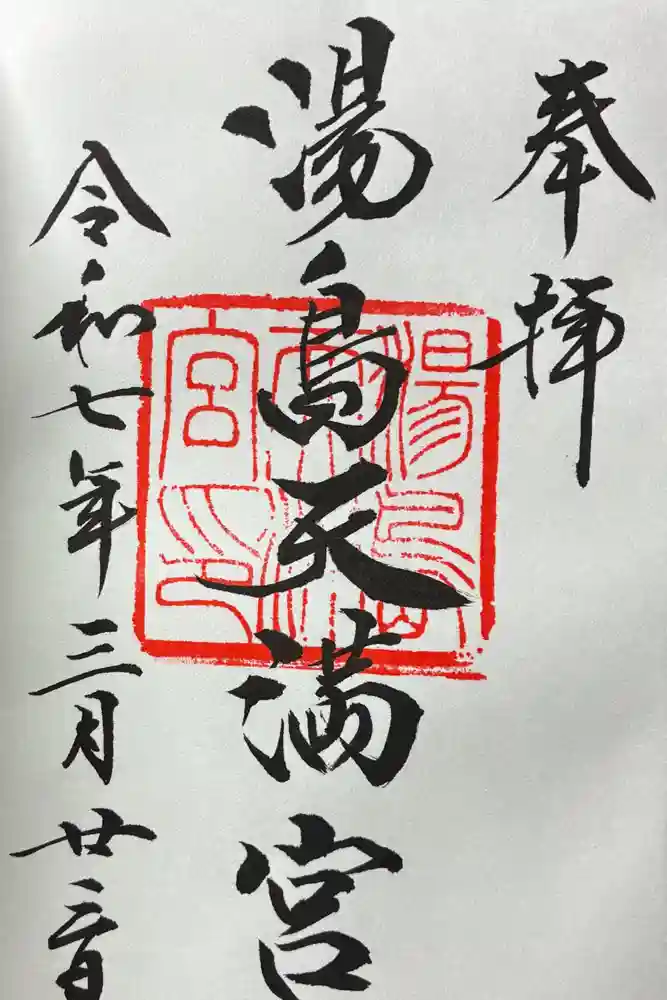 奉拝
湯島天満宮
令和七年三月廿三日
湯島
天満
宮印